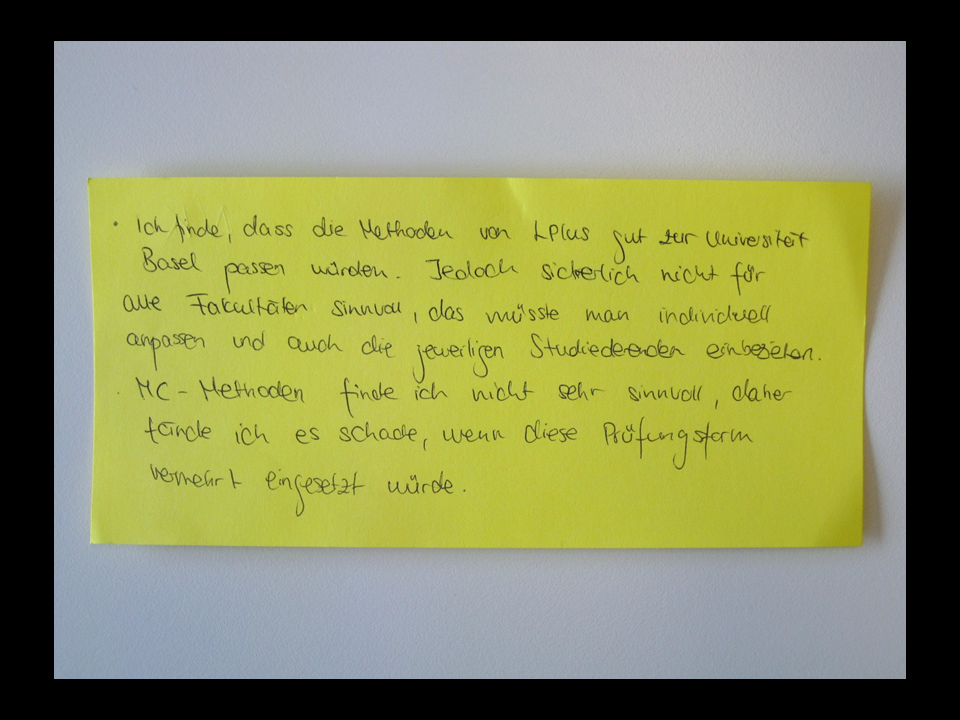 • Ich finde, dass die Methoden von LPlus gut zur Universität
Basel passen würden. Jedoch sicherlich nicht für
alle Fakultäten sinnvoll, das müsste man individuell
anpassen und auch die jeweiligen Studiederenden einbeziehen.
• MC-Methoden finde ich nicht sehr sinnvoll, daher
fände ich es schade, wenn diese Prüfungsform
vermehrt eingesetzt würde.